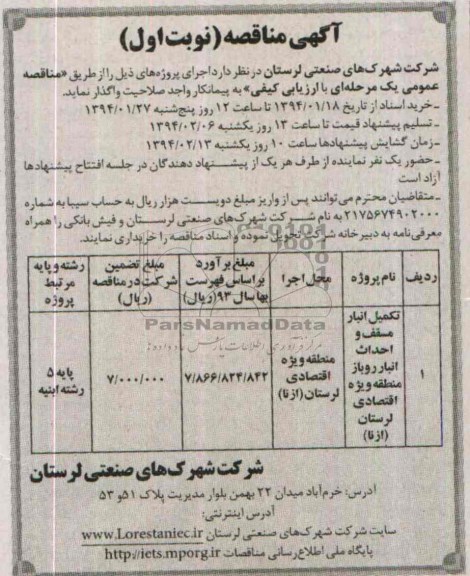 آگهی مناقصه (نوبت اول)
شرکت شهرک‌های صنعتی لرستان در نظر دارد اجرای پروژه‌های ذیل را از طریق «مناقصه
عمومی یک مرحله‌ای با ارزیابی کیفی» به پیمانکار واجد صلاحیت واگذار نماید.
ـ خرید اسناد از تاریخ ۱۳۹۴/۰۱/۱۸ تا ساعت ۱۲ روز پنج‌شنبه ۱۳۹۴/۰۱/۲۷
ـ تسلیم پیشنهاد قیمت تا ساعت ۱۳ روز یکشنبه ۱۳۹۴/۰۲/۰۶
ـ زمان گشایش پیشنهادها ساعت ۱۰ روز یکشنبه ۱۳۹۴/۰۲/۱۳
ـ حضور یک نفر نماینده از طرف هر یک از پیشنهاد دهندگان در جلسه افتتاح پیشنهادها
آزاد است
ـ متقاضیان محترم می‌توانند پس از واریز مبلغ دویست هزار ریال به حساب سیبا به شماره
۲۱۷۵۶۷۴۹۰۲۰۰۰ به نام شرکت شهرک‌های صنعتی لرستان و فیش بانکی را همراه
معرفی‌نامه به دبیرخانه شرکت تحویل نموده و اسناد مناقصه را خریداری نمایند.
ردیف نام پروژه محل اجرا مبلغ برآورد براساس فهرست بها سال ۹۳ (ریال) مبلغ تضمین شرکت در مناقصه (ریال) رشته و پایه مرتبط پروژه
۱ تکمیل انبار مسقف و احداث انبار روباز منطقه ویژه اقتصادی لرستان (ازنا) منطقه ویژه اقتصادی لرستان (ازنا) ۷/۸۶۶/۸۳۴/۸۴۲ ۷/۰۰۰/۰۰۰ پایه ۵ رشته ابنیه
ParsNamadData
شرکت شهرک‌های صنعتی لرستان
آدرس: خرم‌آباد میدان ۲۲ بهمن بلوار مدیریت پلاک ۵۱ و ۵۳
آدرس اینترنتی:
سایت شرکت شهرک‌های صنعتی لرستان www.Lorestaniec.ir
پایگاه ملی اطلاع‌رسانی مناقصات http://iets.mporg.ir